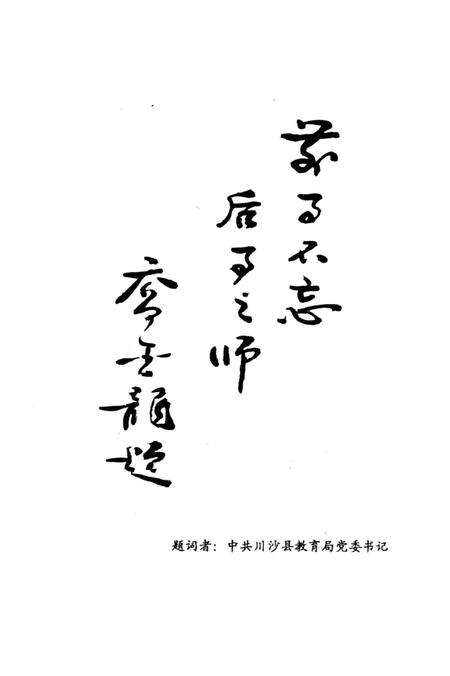 前事不忘
后事之师
乔金龙题
题词者：中共川沙县教育局党委书记